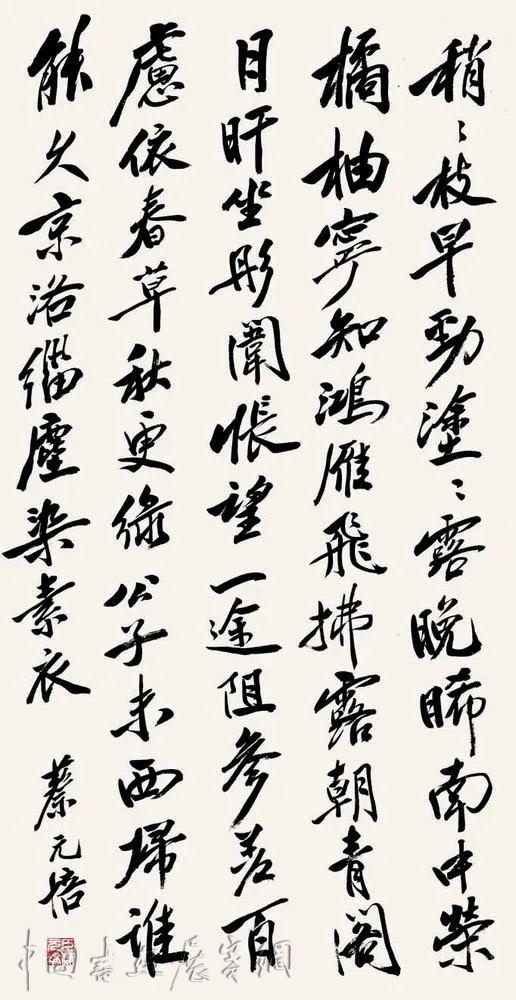 稍〻枝早勁塗〻露晚晞南中榮
橘柚寧知鴻雁飛拂露朝青閣
日旰坐彤闈悵望一途阻參差百
慮依春草秋更綠公子未西歸誰
能久京洛緇塵染素衣
蔡元培
中國書法展賽網